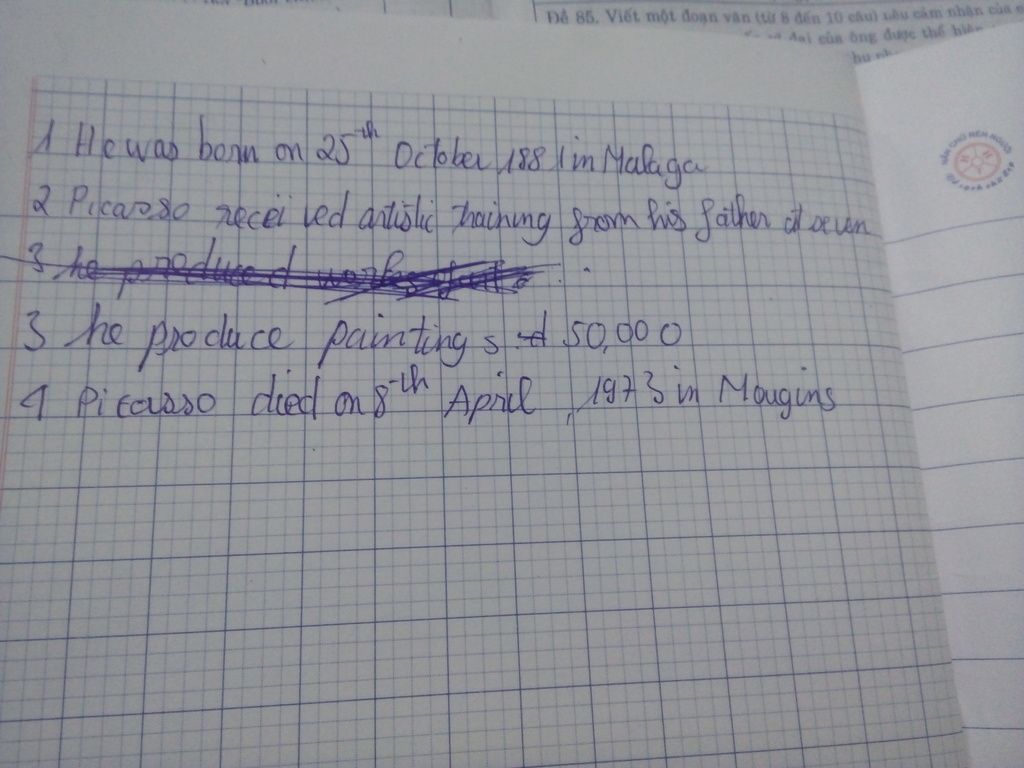 Đề 85. Viết một đoạn văn (từ 8 đến 10 câu) nêu cảm nhận của
đại của ông được thể hiện
1 He was born on 25th October, 1881 in Malaga
2 Picasso received artistic training from his father at seven
3 he produced works
3 he produce paintings 50,000
4 Picasso died on 8th April, 1973 in Mougins